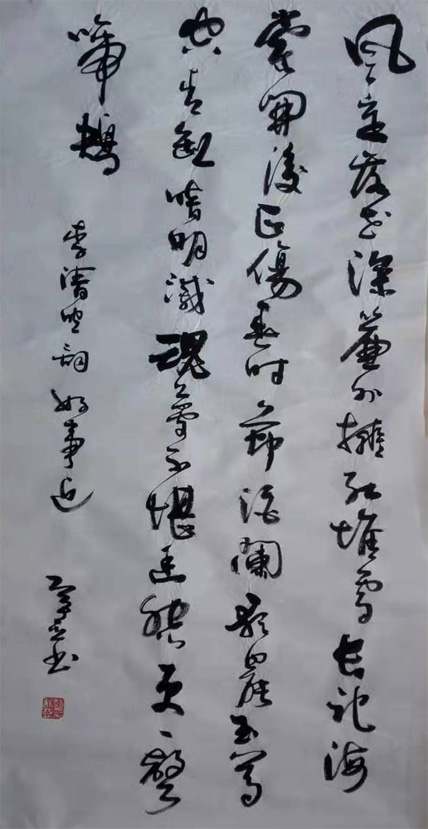 风定落花深簾外擁红堆雪长记海
棠開後正傷春时節酒闌歌罷玉尊
空青缸暗明滅魂夢不堪更一聲
啼鴂
李清照词好事近
书